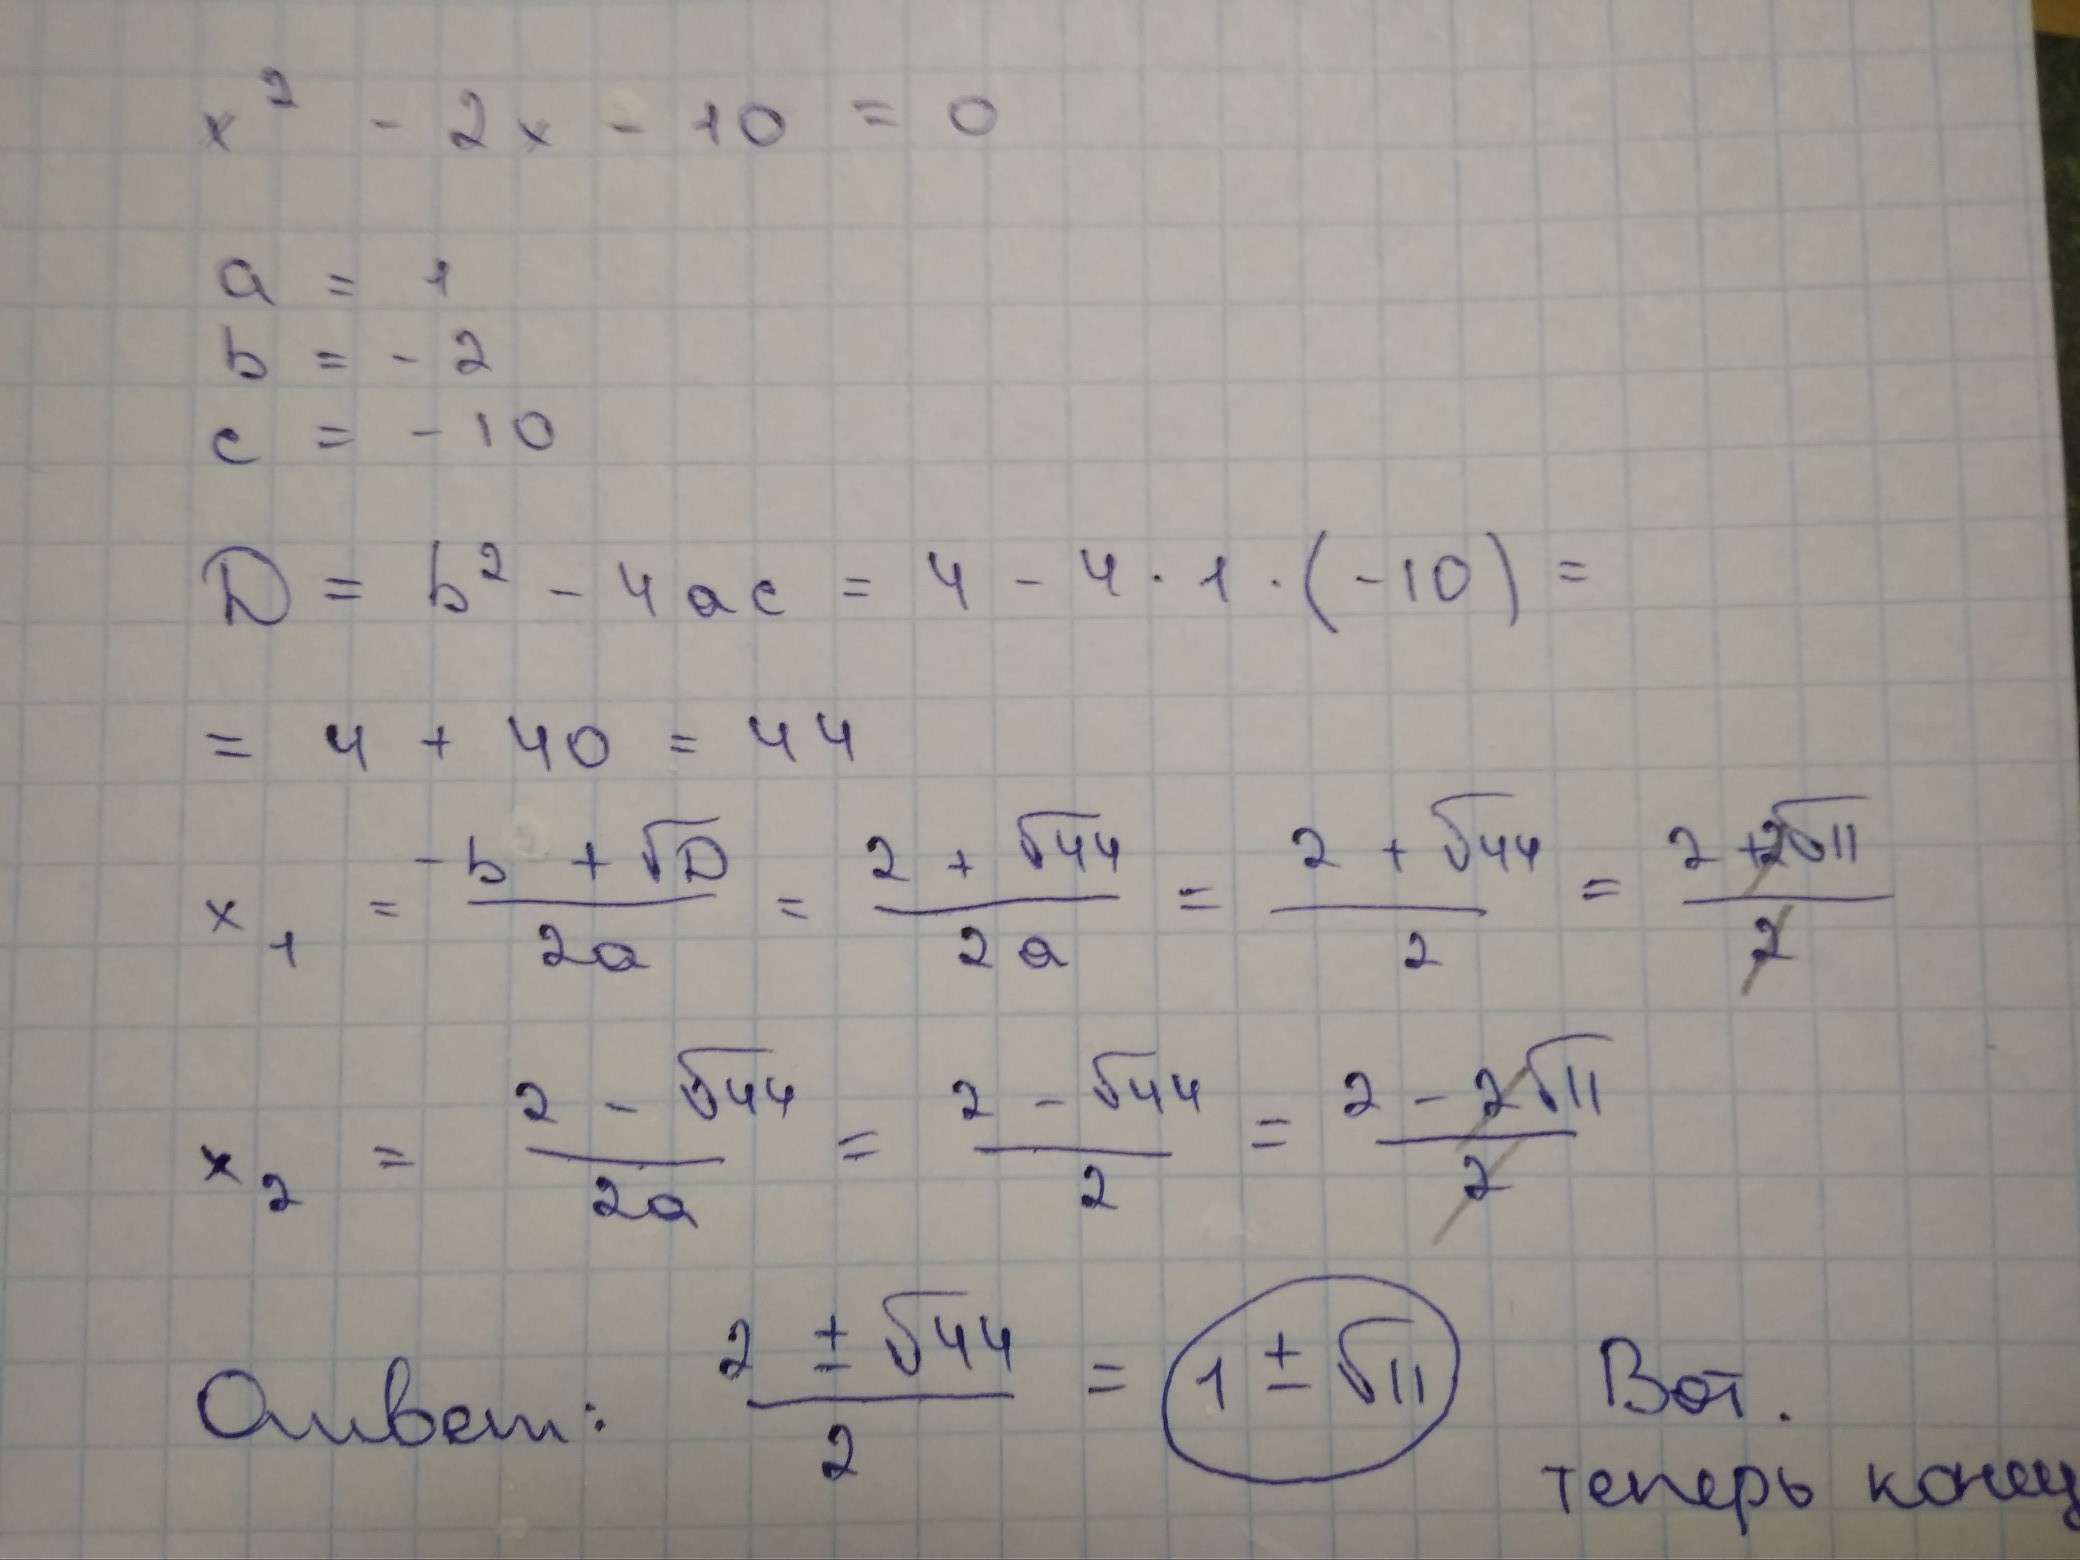 x² - 2x - 10 = 0
a = 1
b = - 2
c = - 10
D = b² - 4ac = 4 - 4 · 1 · (-10) =
= 4 + 40 = 44
x₁ = (-b + √D)/(2a) = (2 + √44)/(2a) = (2 + √44)/2 = (2 + 2√11)/2
x₂ = (2 - √44)/(2a) = (2 - √44)/2 = (2 - 2√11)/2
Ответ: (2 ± √44)/2 = 1 ± √11 Вот.
теперь конец